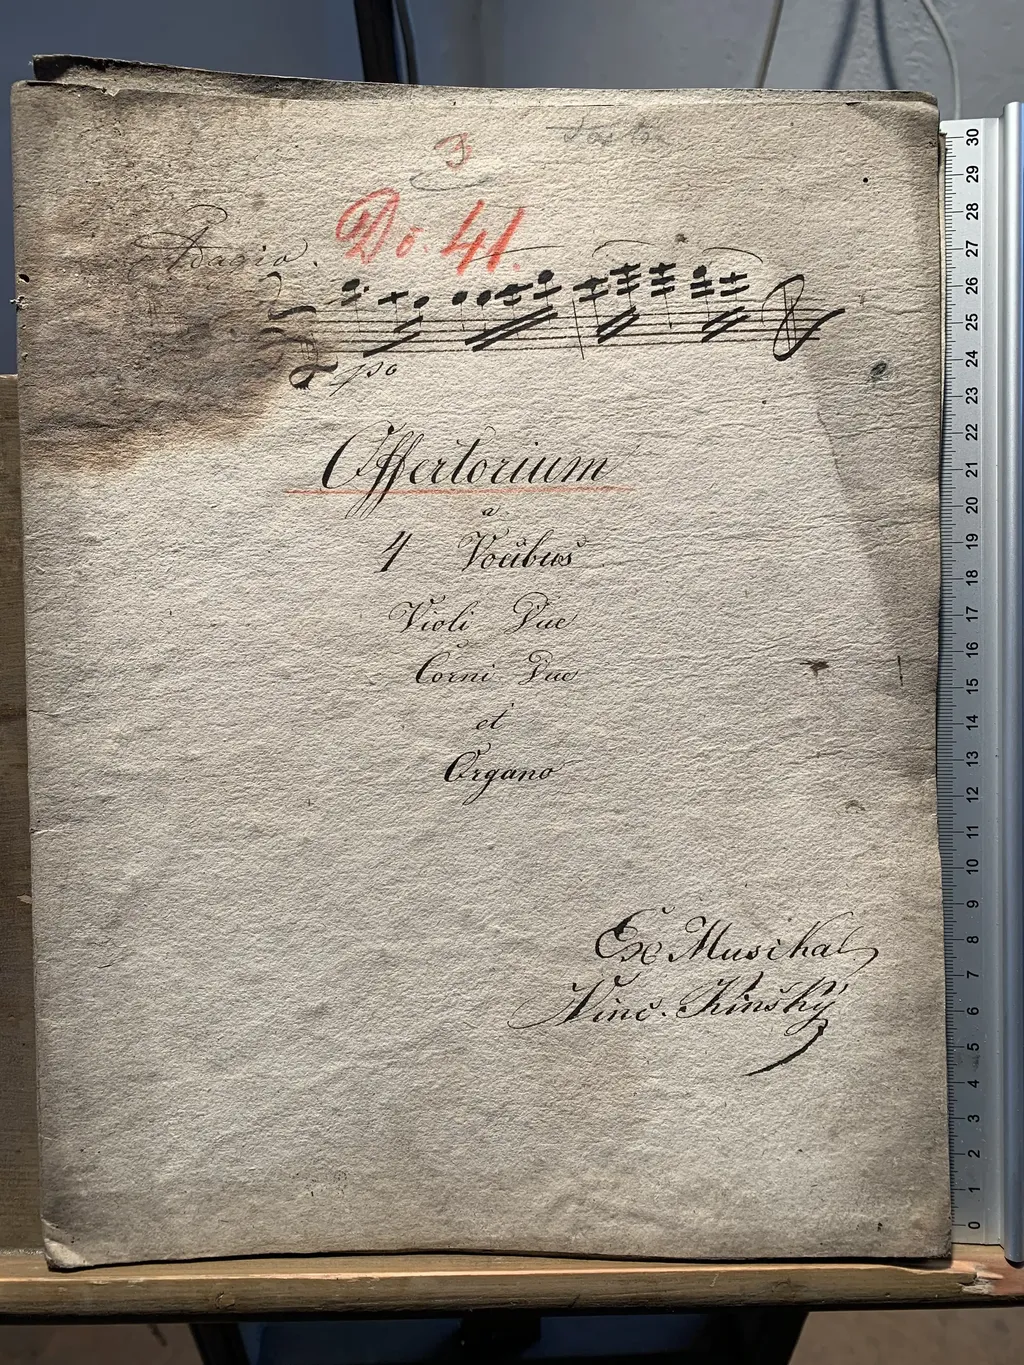 3
No. 41.
Adagio.
po
Offertorium
a
4 Vocibus
Violi Due
Corni Due
et
Organo
Ex Musikal
Vinc. Kinský
30
29
28
27
26
25
24
23
22
21
20
19
18
17
16
15
14
13
12
11
10
9
8
7
6
5
4
3
2
1
0